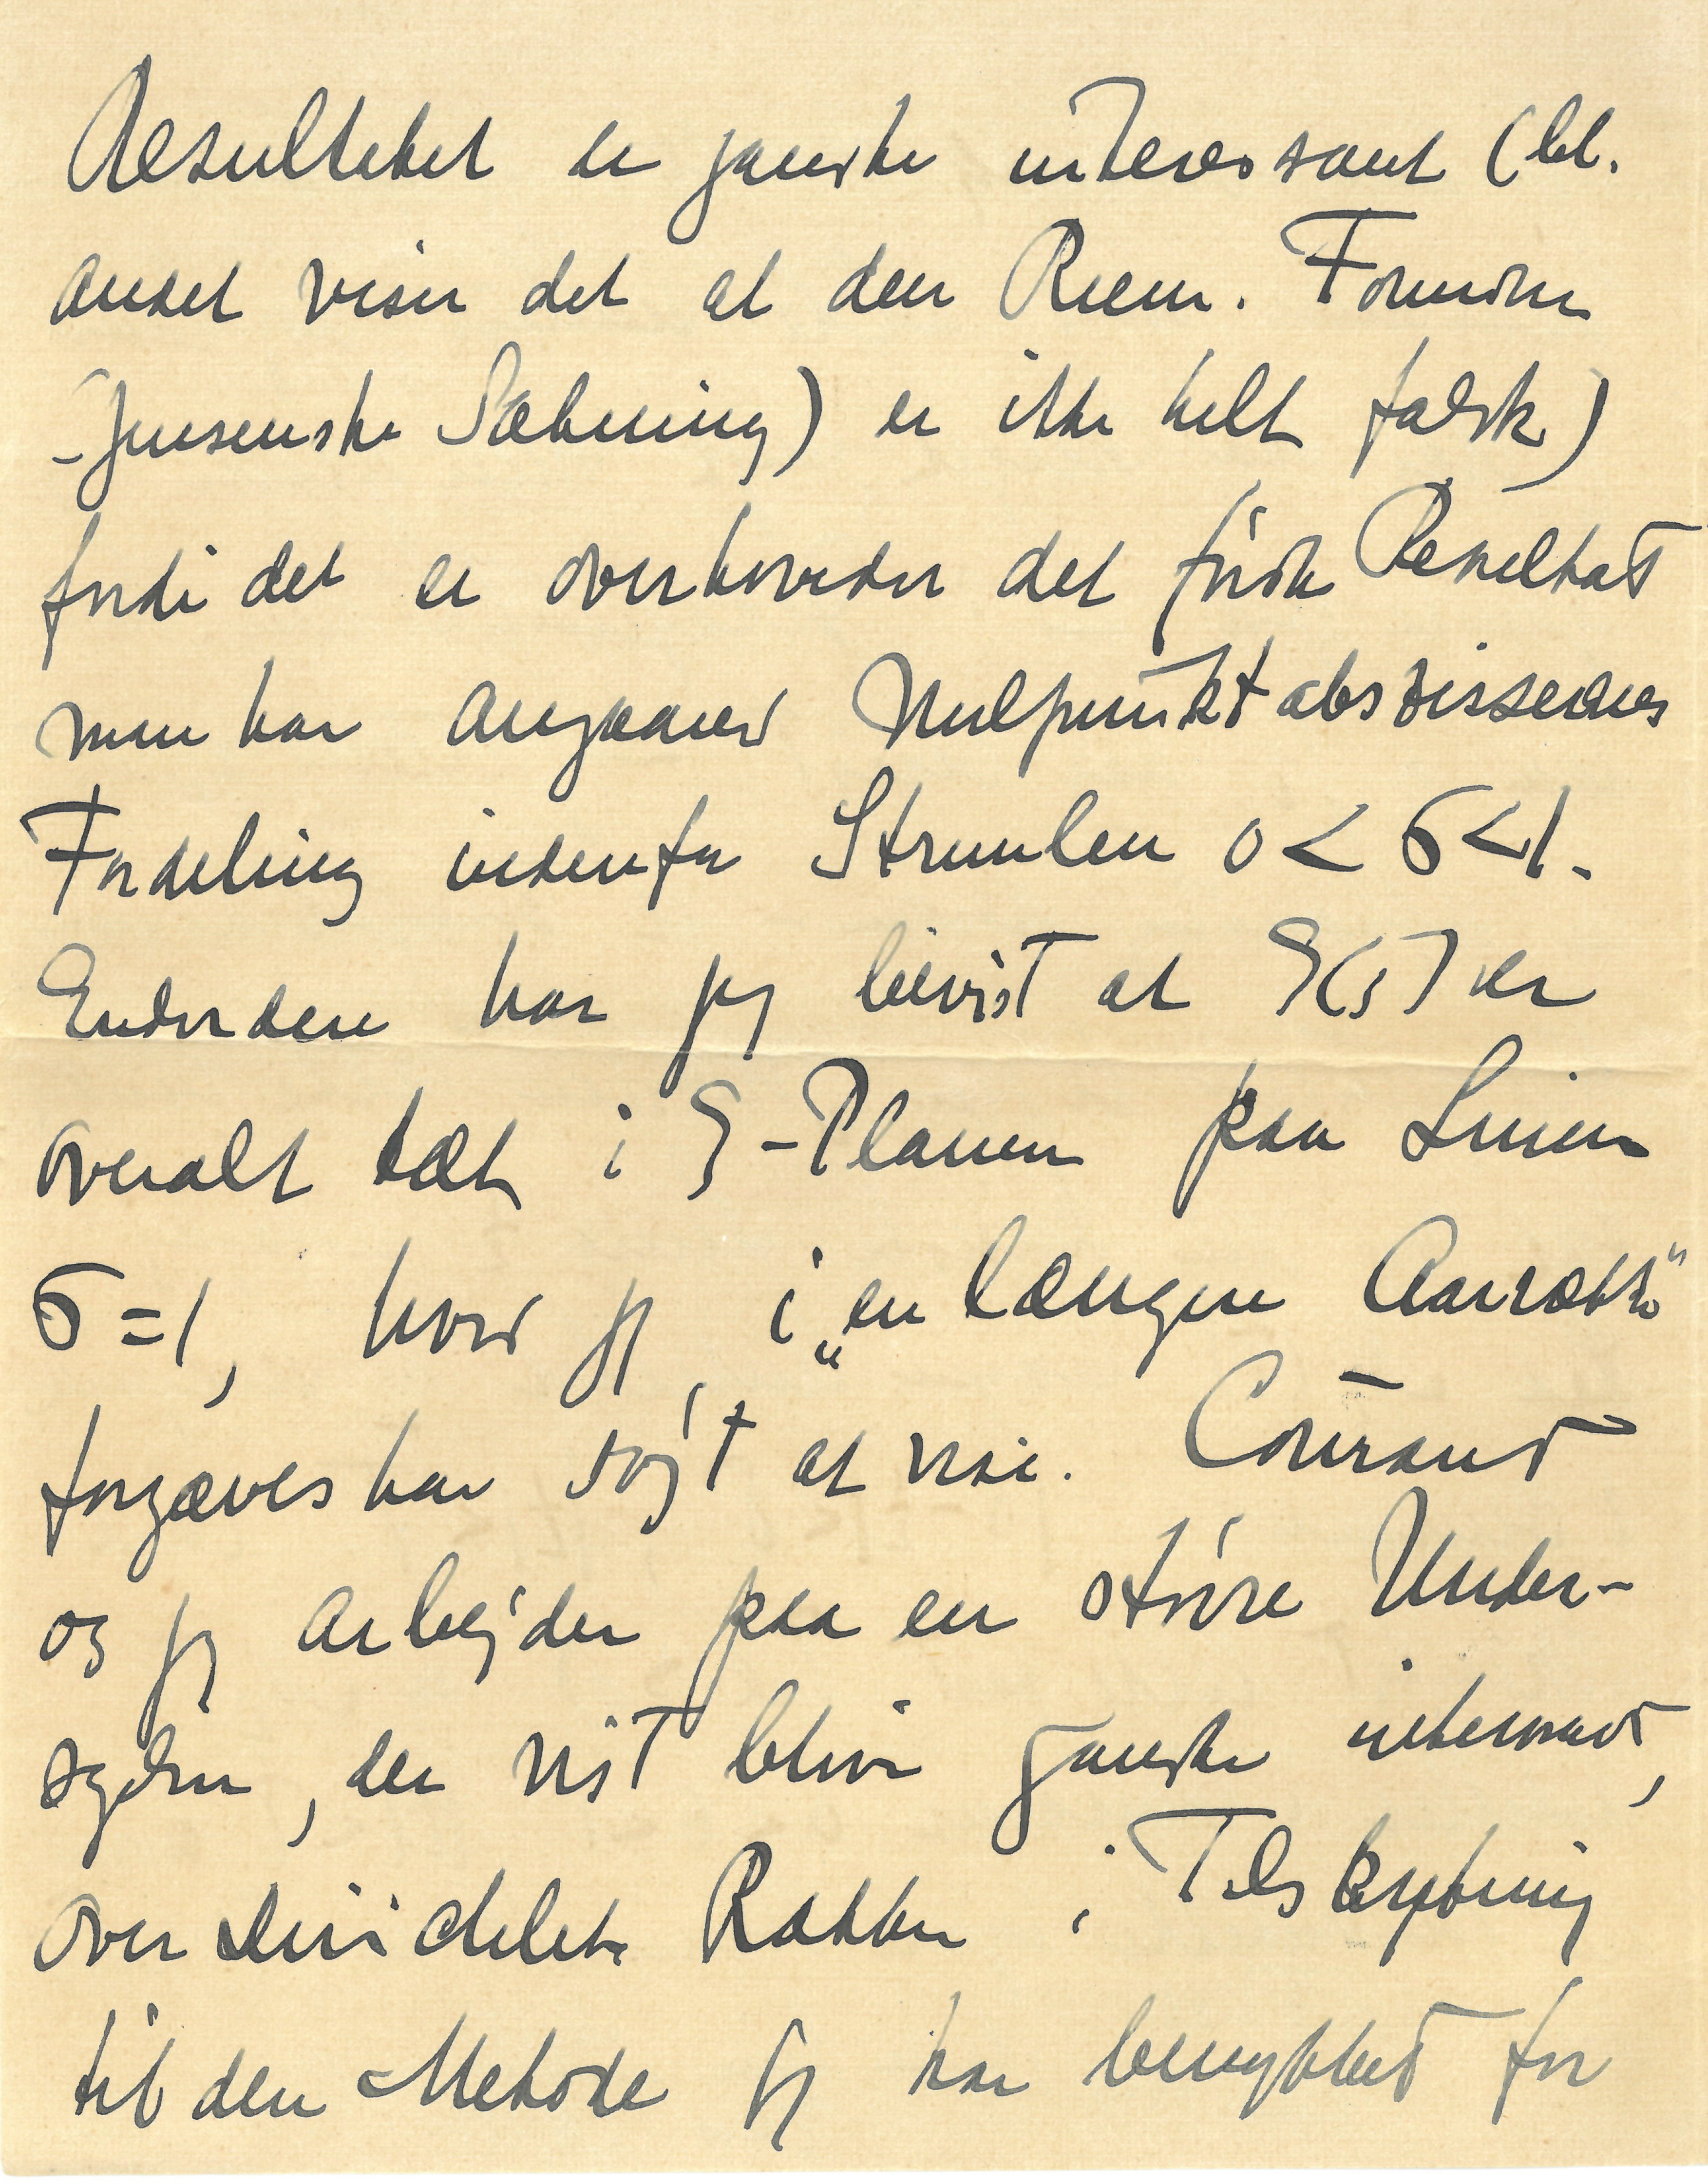 Resultatet er ganske interessant (bl.
andet viser det at den Riem. Formodn
-Jensenske Sætning) er ikke helt falsk)
fordi det er overhovedet det første Resultat
man har angaaend Nulpunktabszissernes
Fordeling indenfor Strimlen 0 < σ < 1.
Endvidere har jeg bevist at ζ(s) er
overalt tæt i ζ-Planen paa Linien
σ = 1, hvad jeg i „en længere Aarrække"
forgæves har søgt at vise. Courant
og jeg arbejder paa en større Under-
søgelse, der vist bliver ganske interessant,
over Dirichletske Rækker i Tilskytning
til den Metode jeg har benyttet for